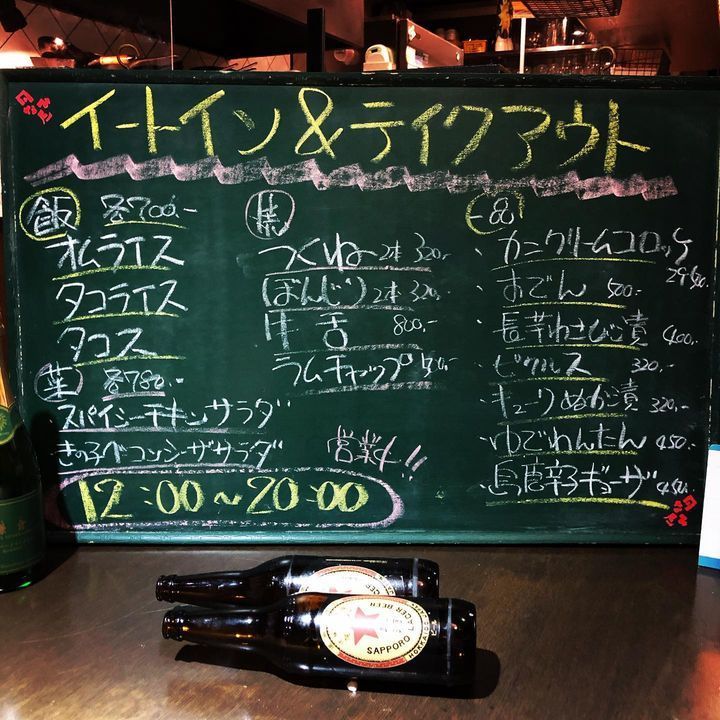 イートイン&テイクアウト
飯 各700.-
オムライス
タコライス
タコス
菜 各780.-
スパイシーチキンサラダ
きの子ベーコンシーザサラダ
12:00~20:00
営業中!!
つくね 2本 320.-
ぼんじり 2本 320.-
牛舌 800.-
ラムチャップ
一品
、カニクリームコロッケ
、おでん 500.-
、長芋わさび漬 400.-
、ピクルス 320.-
、キューリぬか漬 320.-
、ゆでわんたん 450.-
、鳥唐辛子ギョーザ 450.-
SAPPORO
LAGER BEER
HOKKAIDO